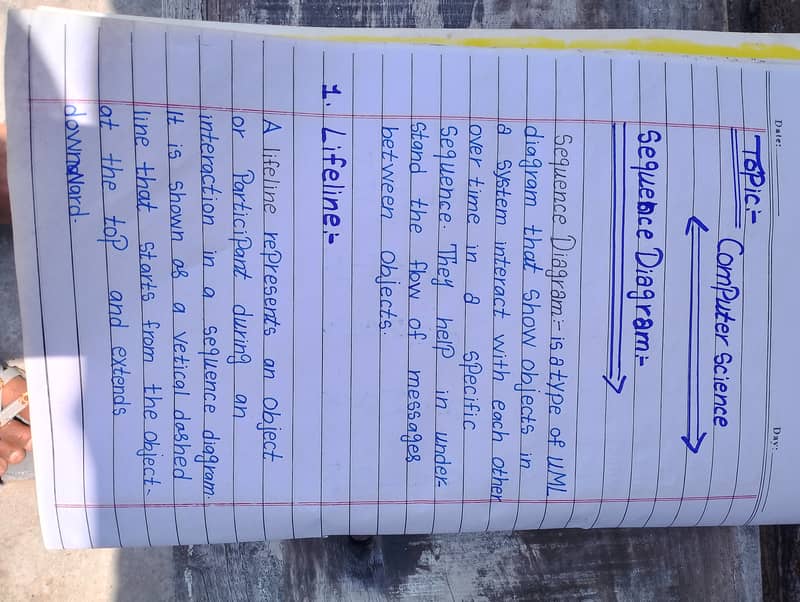 Date:
Day:
Topic:- Computer Science
Sequence Diagram:-
Sequence Diagram:- is a type of UML
diagram that show objects in
a system interact with each other
over time in a specific
Sequence. They help in under-
stand the flow of messages
between objects.
1. Lifeline:-
A lifeline represents an object
or Participant during an
interaction in a sequence diagram.
It is shown as a vetical dashed
line that starts from the object.
at the top and extends
downward.